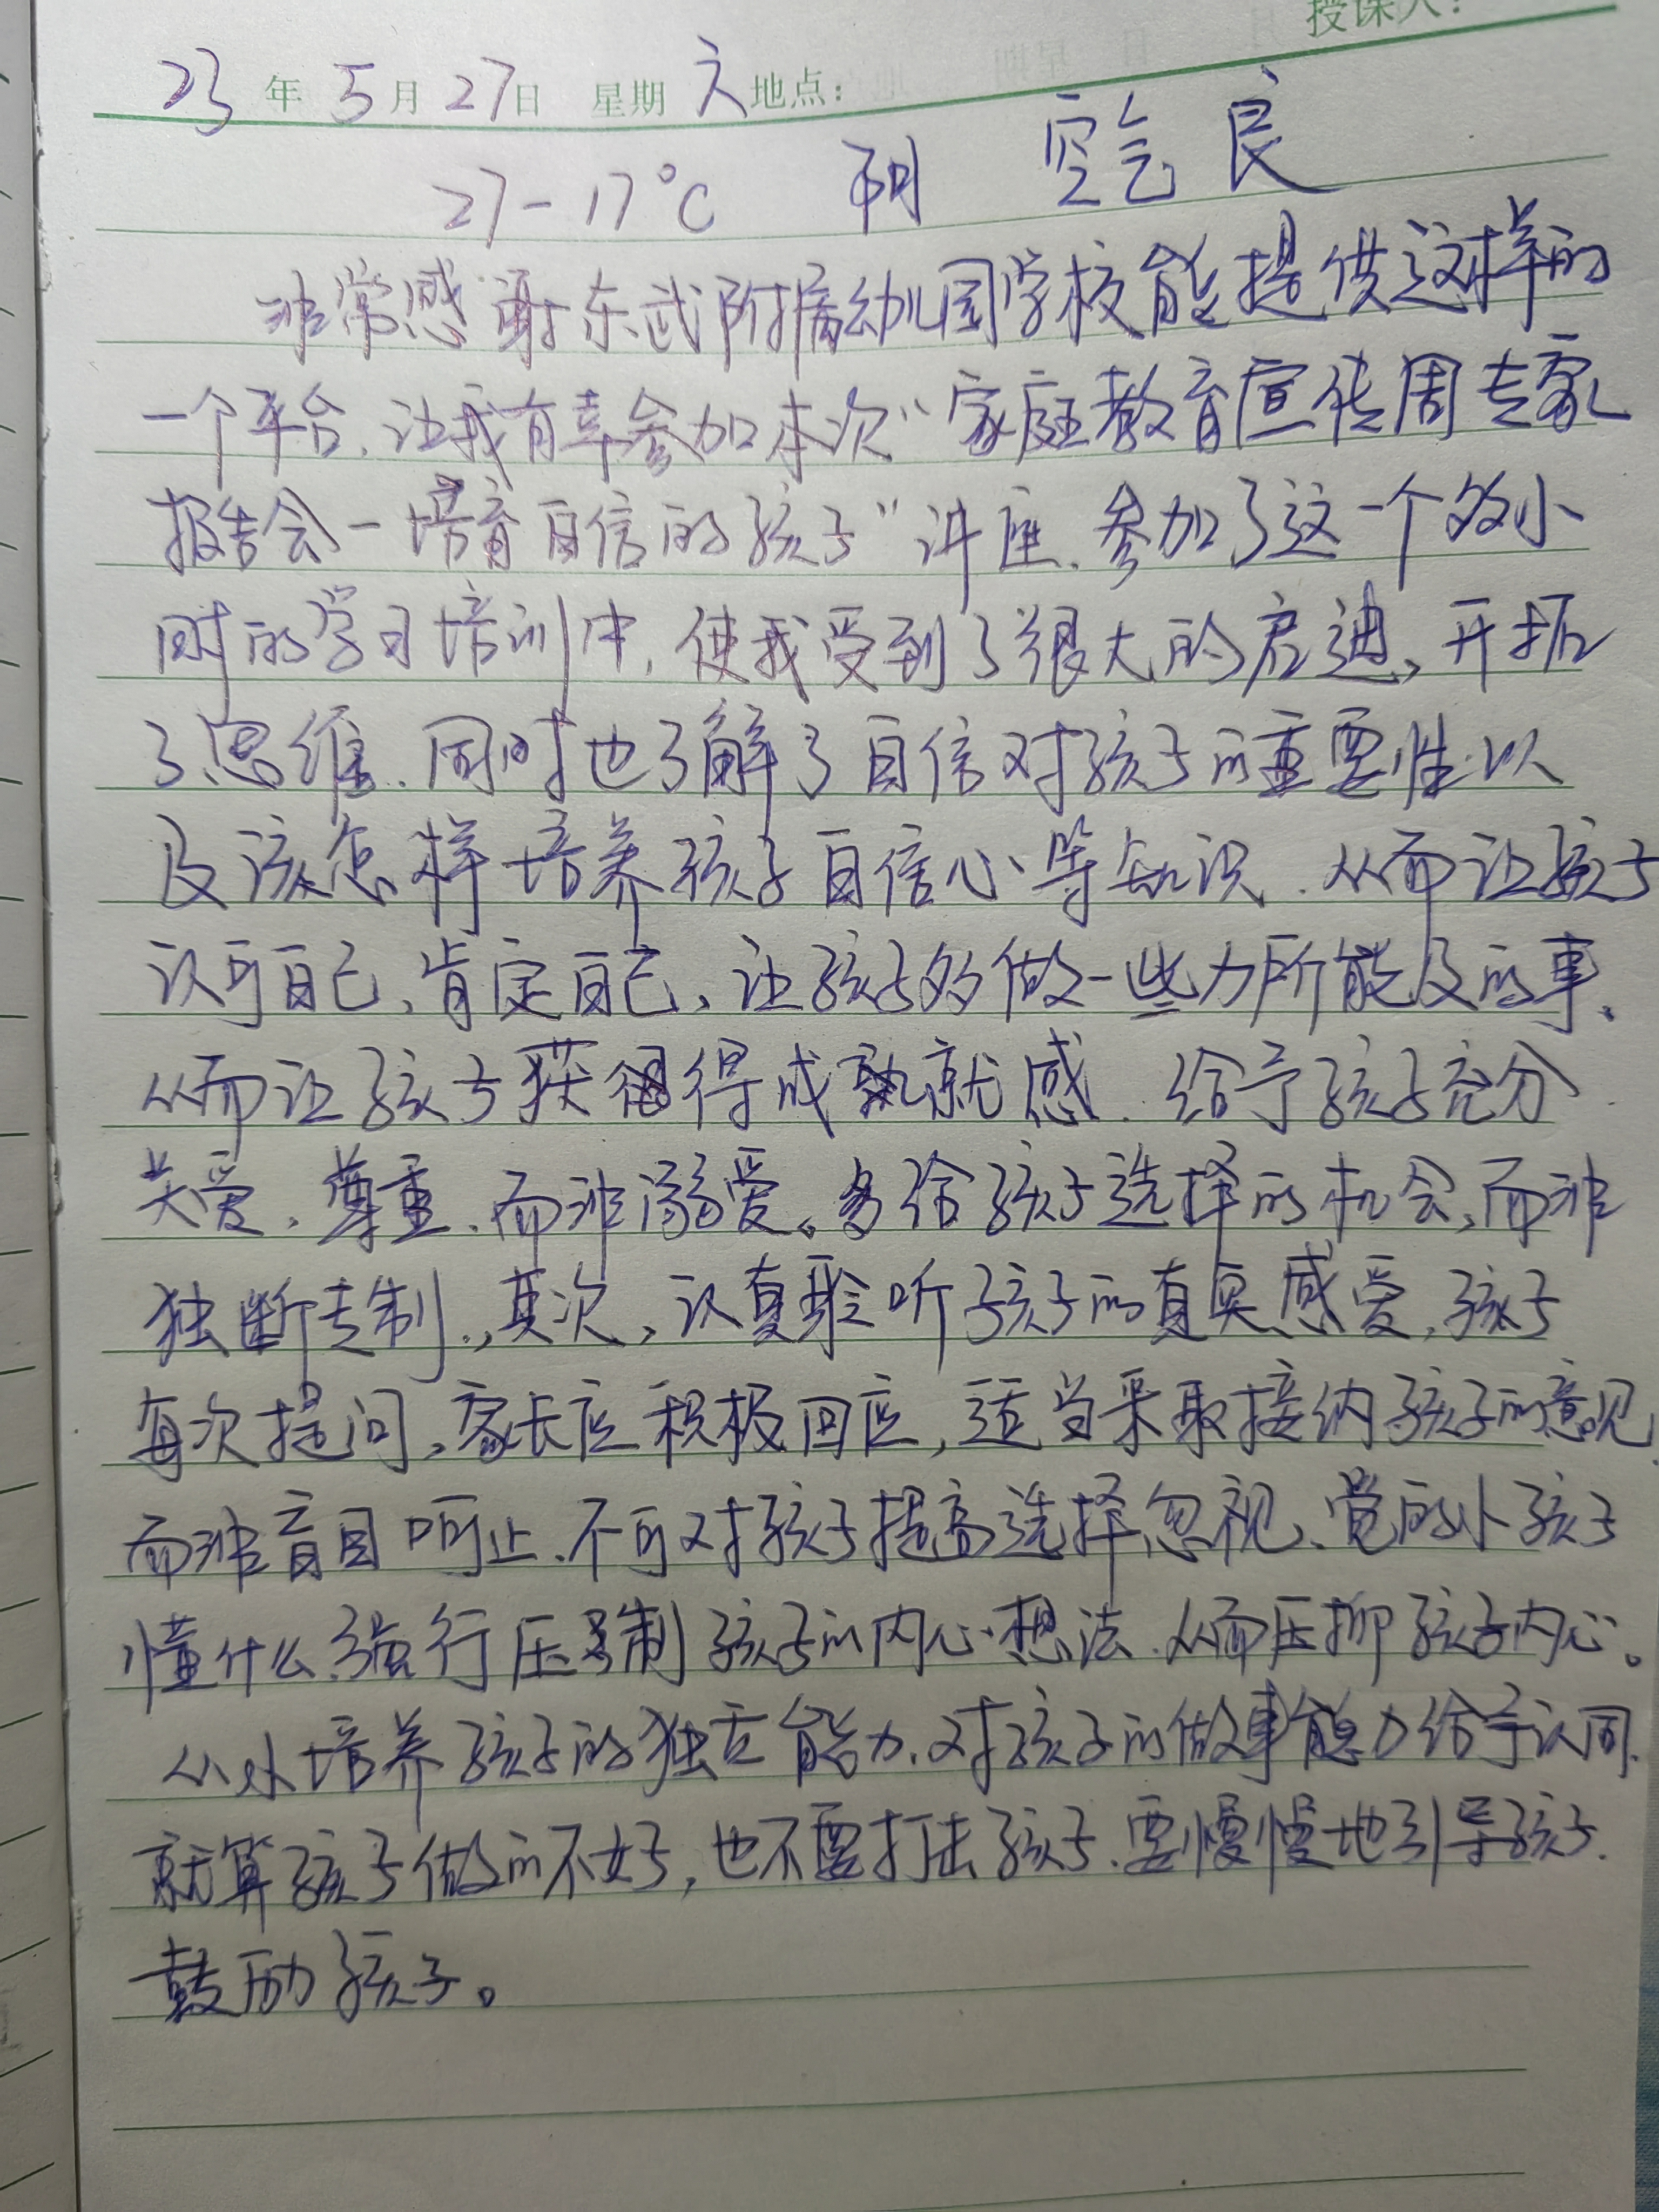 授课人：
23年5月27日 星期六 地点：
27-17℃ 阴 空气良
非常感谢东武附属幼儿园学校能提供这样的
一个平台，让我有幸参加本次“家庭教育宣传周专家
报告会一培育自信的孩子”讲座，参加了这一个多小
时的学习培训中，使我受到了很大的启迪，开拓
了思维，同时也了解了自信对孩子的重要性以
及该怎样培养孩子自信心等知识，从而让孩子
认可自己，肯定自己，让孩子多做一些力所能及的事，
从而让孩子获得成就感，给予孩子充分
关爱，尊重，而非溺爱。多给孩子选择的机会，而非
独断专制，其次，认真聆听孩子的真实感受，孩子
每次提问，家长应积极回应，适当采取接纳孩子的意见
而非盲目呵止，不可对孩子提高选择忽视，觉的小孩子
懂什么，强行压制孩子的内心想法，从而压抑孩子内心。
从小培养孩子的独立能力，对孩子的做事能力给予认同，
就算孩子做的不好，也不要打击孩子，要慢慢地引导孩子，
鼓励孩子。